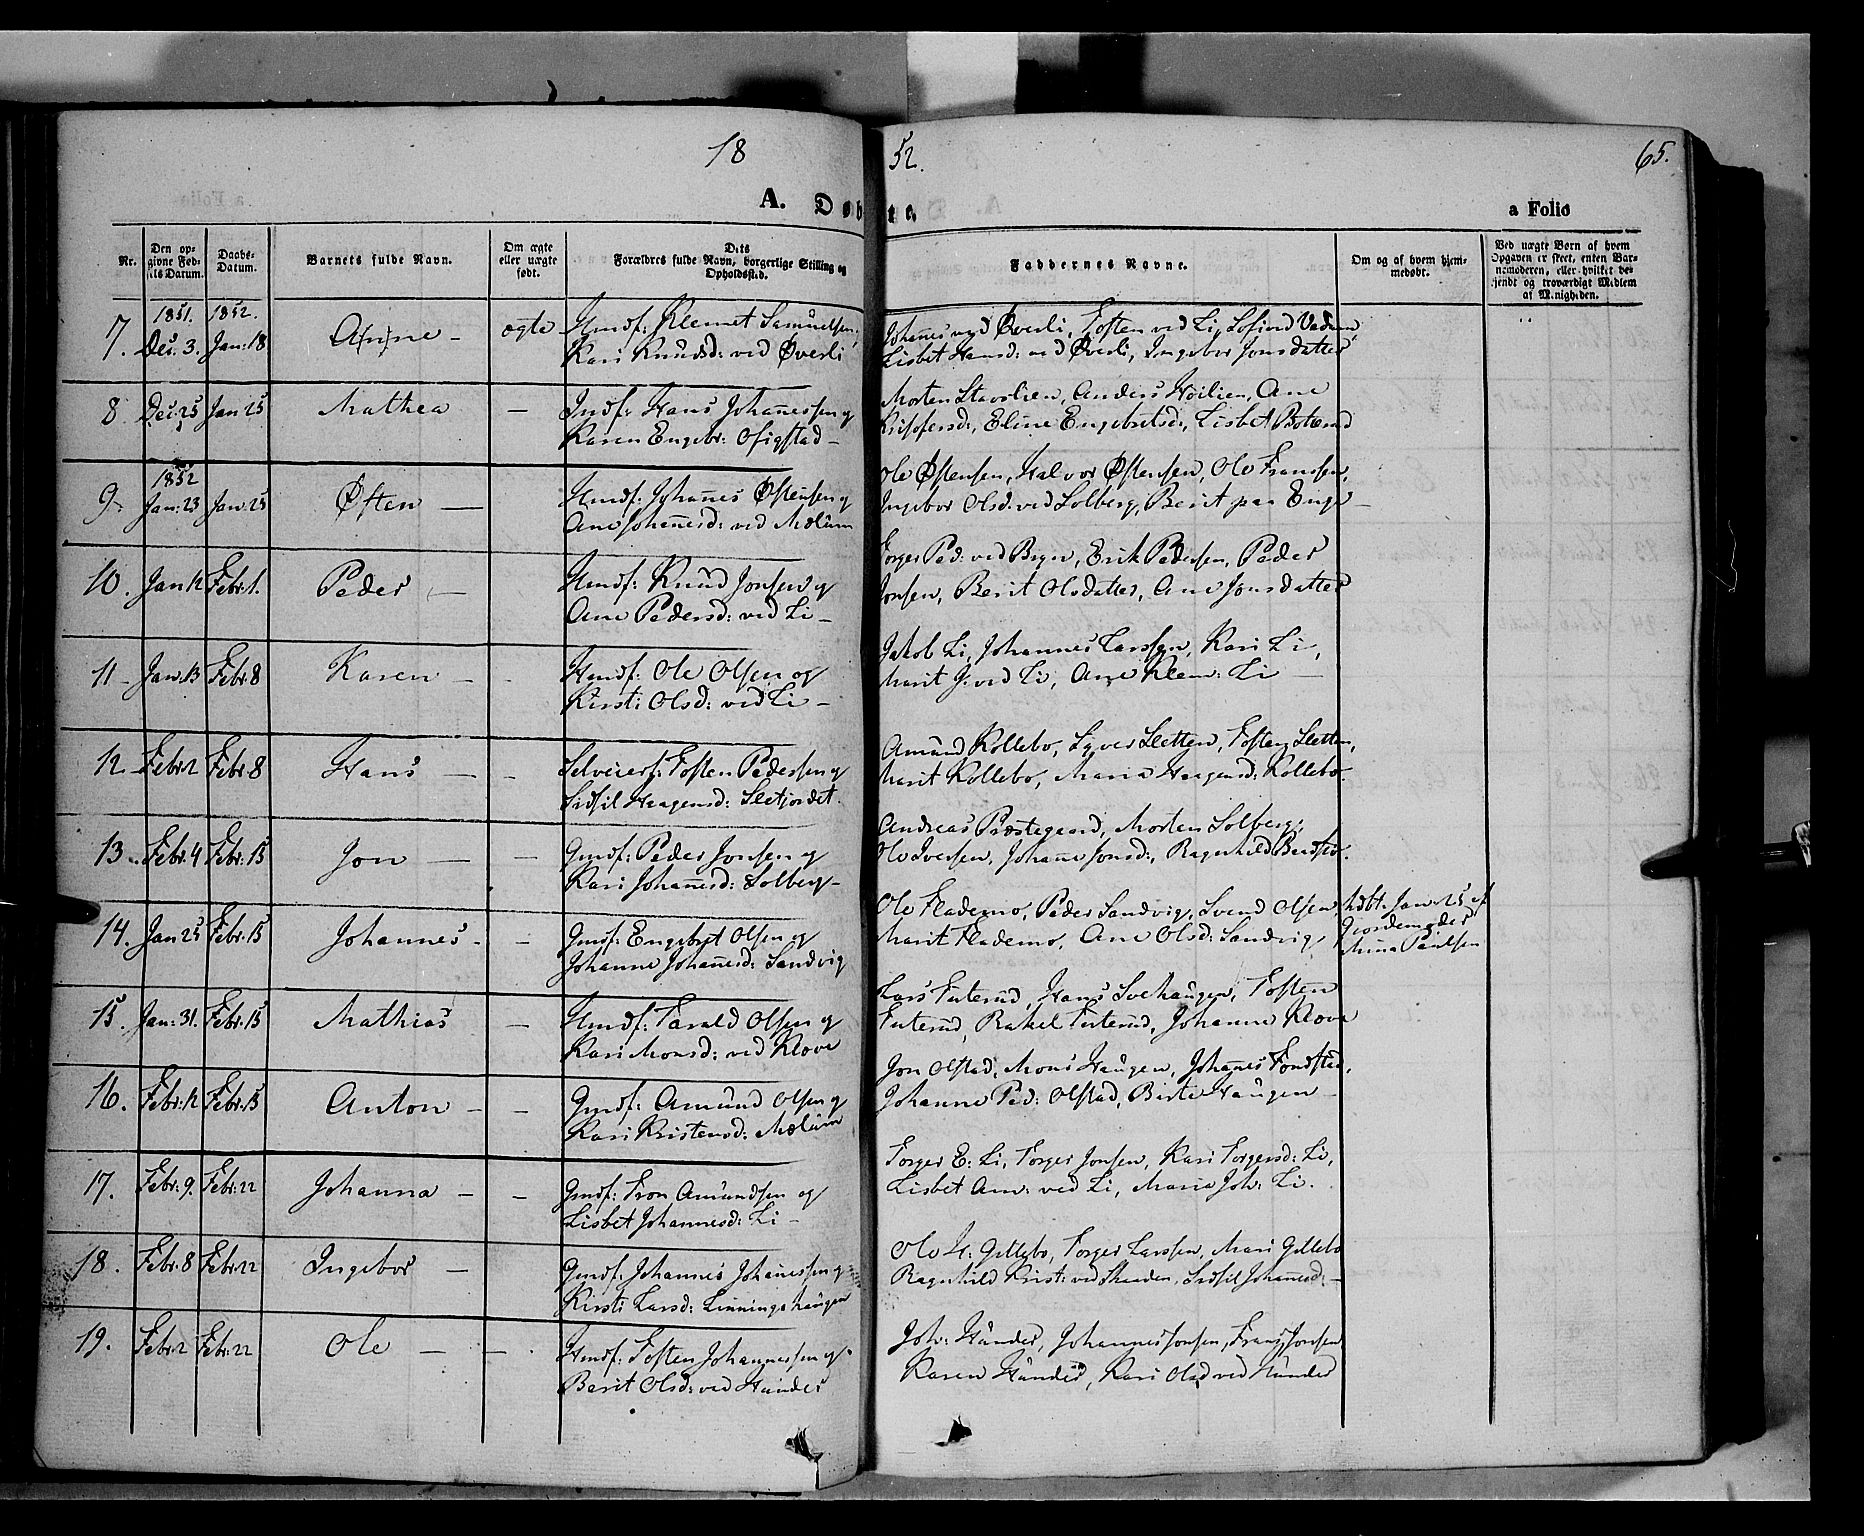 18 52. 65.
A. Døbte. a Folio
Nr. Den opgivne Fødsels Datum. Daabs-Datum. Barnets fulde Navn. Om ægte eller uægte født. Dets Forældres fulde Navn, borgerlige Stilling og Opholdssted. Faddernes Navne. Om og af hvem hjemmedøbt. Ved uægte Børn af hvem Opgaven er skeet, enten Barnemoderen, eller hvilket bekjendt og troværdigt Medlem af Menigheden.
7. 1851. Dec: 3. 1852. Jan: 18 Anne – ægte Hmdf: Klemet Samuelsen, Johanes ved Øverli, Tosten ved Li,
Kari Knudsd: ved Øverli Lisbet Hansd: ved Øverli, Ingebor Jonsdatter
8. Dec: 25 Jan: 25 Mathea – Indf: Hans Johanessen og Morten Stavslien, Anders Høilien, Ane
Karen Engebr: Sigstad – Kristofersd:, Eline Engebretsd:, Lisbet
9. 1852 Jan: 23 Jan: 25 Østen – Hmdf: Johanes Østensen og Ole Østensen, Halvor Østensen, Ole Fransen,
Ane Johanesd: ved Mælum Ingebor Olsd: ved Solberg, Berit paa Enge –
10. Jan 12 Febr: 1. Peder – Hmdf: Knud Jonsen og Torger Ped: ved Bryn, Erik Pedersen, Peder
Ane Pedersd: ved Li – Jonsen, Berit Olsdatter, Ane Jonsdatter
11 – Jan: 13 Febr: 8 Karen – – Hmdf: Ole Olsen og Jakob Li, Johannes Larssen, Kari Li,
Kirsti Olsd: ved Li – Marit J: ved Li, Ane Klem: Li –
12 Febr: 2 Febr: 8 Hans – – Selveierf: Tosten Pedersen og Amund Kollebo, Syver Sletten, Tosten Sletten,
Sidsil Haagensd: Sletjordet. Marit Kollebo, Maria Haagensd: Kollebo.
13. Febr: 4 Febr: 15 Jon – – Gmdf: Peder Jonsen og Andreas Præstegaard, Morten Solberg,
Kari Johanesd: Solberg – Ole Iversen, Johanne Jonsd:, Ragnhild
14. Jan 25 Febr: 15 Johannes – – Gmdf: Engebret Olsen og Ole Flademo, Peder Sandvig, Svend Olsen, hdbt. Jan: 25 af
Johanne Johanesd: Sandvig Marit Flademo, Ane Olsd: Sandvig Gjordemoder
Mina Paulsen
15. Jan: 31. Febr: 15 Mathias – Hmdf: Tarald Olsen og Lars Tuterud, Hans Svehaugen, Tosten
Kari Monsd: ved Kløve Tuterud, Rakel Tuterud, Johanne Kløve
16. Febr: 12 Febr: 15 Anton – – Gmdf: Amund Olsen og Jon Olstad, Mons Haugen, Johanes Fondstad,
Kari Kristensd: Mælum Johanne Ped: Olstad, Birte Haugen –
17. Febr: 9. Febr: 22 Johanna – – Gmdf: Tron Amundsen og Torger E: Li, Torger Jonsen, Kari Torgersd: Li,
Lisbet Johannesd: Li – Lisbet Am: ved Li, Maria Joh: Li.
18. Febr: 8 Febr: 22 Ingebor – Gmdf: Johannes Johanessen og Ole H: Gillebo, Torger Larssen, Mari Gillebo
Kirsti Larsd: Linningshaugen Ragnhild Krist: ved Skaaden, Sidsil Johanesd: –
19. Febr: 2 Febr: 22 Ole – – Hmdf: Tosten Johannessen og Joh: Hunder, Johannes Jonsen, Frans Jonsen
Berit Olsd: ved Hunder Karen Hunder, Kari Olsd ved Hunder